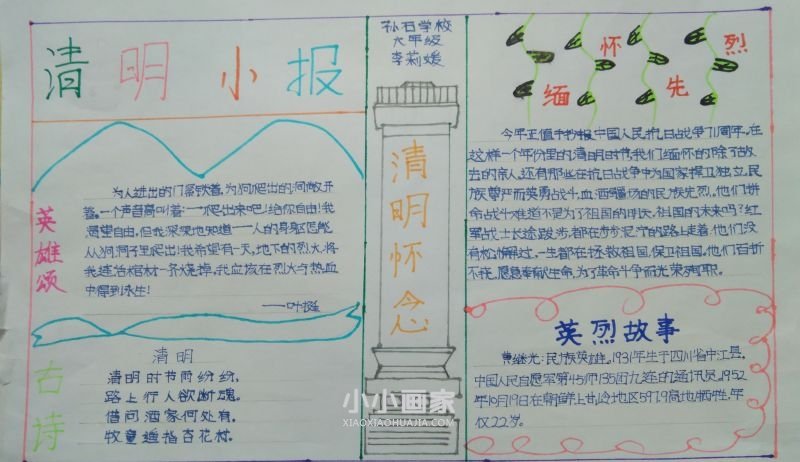 清明小报
英雄颂
为人进出的门紧锁着,为狗爬出的洞敞开
着。一个声音高叫着:——爬出来吧!给你自由!我
渴望自由,但我深深地知道——人的身躯怎能
从狗洞子里爬出!我希望有一天,地下的烈火,将
我连活棺材一齐烧掉,我应该在烈火与热血
中得到永生!
——叶挺
古诗
清明
清明时节雨纷纷,
路上行人欲断魂。
借问酒家何处有,
牧童遥指杏花村。
孙石学校
六年级
李莉媛
清明怀念
缅怀先烈
今年正值 中国人民抗日战争71周年。在
这样一个年份里的清明时节,我们缅怀的除了故
去的亲人,还有那些在抗日战争中为国家捍卫独立,民
族尊严而英勇战斗,血洒疆场的民族先烈,他们拼
命战斗难道不是为了祖国的明天,祖国的未来吗?红
军战士长途跋涉,都在步步泥泞的路上走着,他们没
有松懈过,一生都在拯救祖国,保卫祖国。他们百折
不挠,愿意奉献生命,为了革命斗争而光荣殉职。
英烈故事
黄继光:民族英雄。1931年生于四川省中江县。
中国人民自愿军第45师135团九连的通讯员。1952
年10月19日在朝鲜上甘岭地区597.9高地牺牲,年
仅22岁。
小小画家
XIAOXIAOHUAJIA.COM